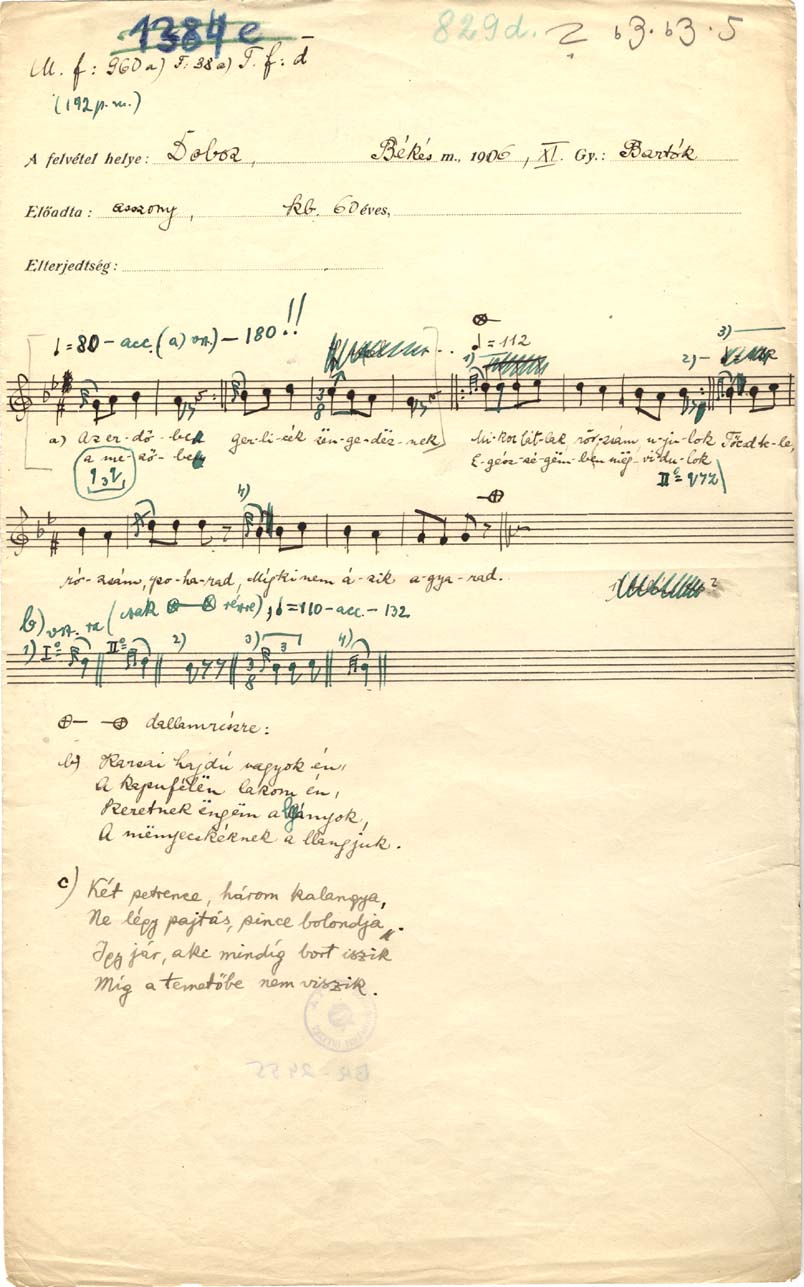 1384 e
829 d. 2 ♭3. ♭3. 5
M. f: 960 a) T. 38 a) T. f: d
(192 p. m.)
A felvétel helye: Doboz, Békés m., 1906, XI. Gy.: Bartók
Előadta: asszony, kb. 60 éves,
Elterjedtség:
♩=80 - acc. (a) vsz.) - 180 !!
♩=112
1) 2) 3)
a) Az er-dő-be ger-li-cék zën-ge-dëz-nek, Mi-kor lát-lak rózs-szám uj-u-lok Tőcsd te-le,
a me-ző-be E-gész-sé-gëm-ben mëg-vi-du-lok
II=
4)
ró-zsám, po-ha-rad, Míg ki nem á-zik a gya-rad.
b) vsz. ra (csak részre), ♩=110 - acc. - 132
1) I II 2) 3) 4)
dallamrészre:
b) Karsai hajdú vagyok én,
A kapufélën lakom én,
Szeretnek ëngëm a lányok,
A mënyecskéknek a
c) Két petrence, három kalangya,
Ne légy pajtás, pince bolondja
Így jár, aki mindíg bort iszik
Míg a temetőbe nem viszik.